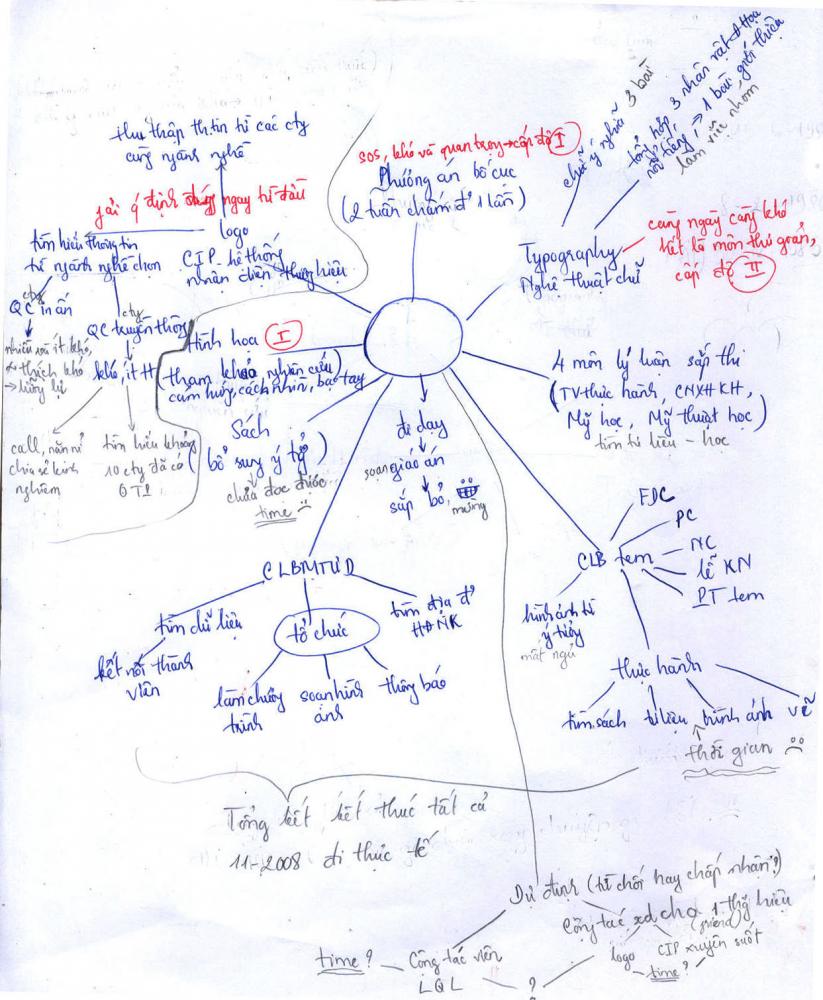 thu thập th.tin từ các cty
cùng ngành nghề
phải ý định đúng ngay từ đầu
logo
CIP hệ thống
nhận diện thương hiệu
tìm hiểu thông tin
từ ngành nghề chọn
cty
QC in ấn
cty
QC truyền thông
khó, ít
call, năn nỉ
chia sẻ kinh
nghiệm
tìm hiểu khoảng
10 cty đã có
sos, khó và quan trọng → cấp độ I
Phương án bố cục
(2 tuần chấm đ' 1 lần)
chữ ý nghĩa 3 bài
tổng hợp, 3 nhân vật
nổi tiếng, → 1 bài giới thiệu
làm việc nhóm
Typography
Nghệ thuật chữ
càng ngày càng khó
hết là môn thư giãn,
cấp độ II
Hình họa I
(tham khảo nghiên cứu
cảm hứng, cách nhìn, bạo tay
Sách
(bổ sung ý tg)
chưa đọc được
time
4 môn lý luận sắp thi
(TV thực hành, CNXHKH,
Mỹ học, Mỹ thuật học)
tìm tài liệu - học
đi dạy
soạn giáo án
sắp bỏ,
mừng
CLBMTUD
tìm dữ liệu
kết nối thành
viên
tổ chức
làm chương
trình
soạn hình
ảnh
thông báo
tìm địa đ'
HĐNK
CLB tem
FDC
PC
NC
lễ KN
PT tem
hình ảnh từ
ý tưởng
mất ngủ
thực hành
tìm sách
tài liệu
hình ảnh
vẽ
thời gian
Tổng kết, kết thúc tất cả
11-2008 đi thực tế
Dự định (từ chối hay chấp nhận?)
Cộng tác viên
LQL
time?
?
Cộng tác xd cho 1 thg hiệu
(friend)
logo
CIP xuyên suốt
time?